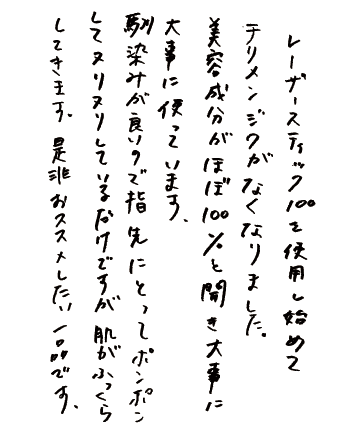 レーザースティック100を使用し始めて
チリメンジワがなくなりました。
美容成分がほぼ100%と聞き大事に
大事に使っています、
馴染みが良いので指先にとってポンポン
してヌリヌリしているだけですが肌がふっくら
してきます。是非おススメしたい一品です、